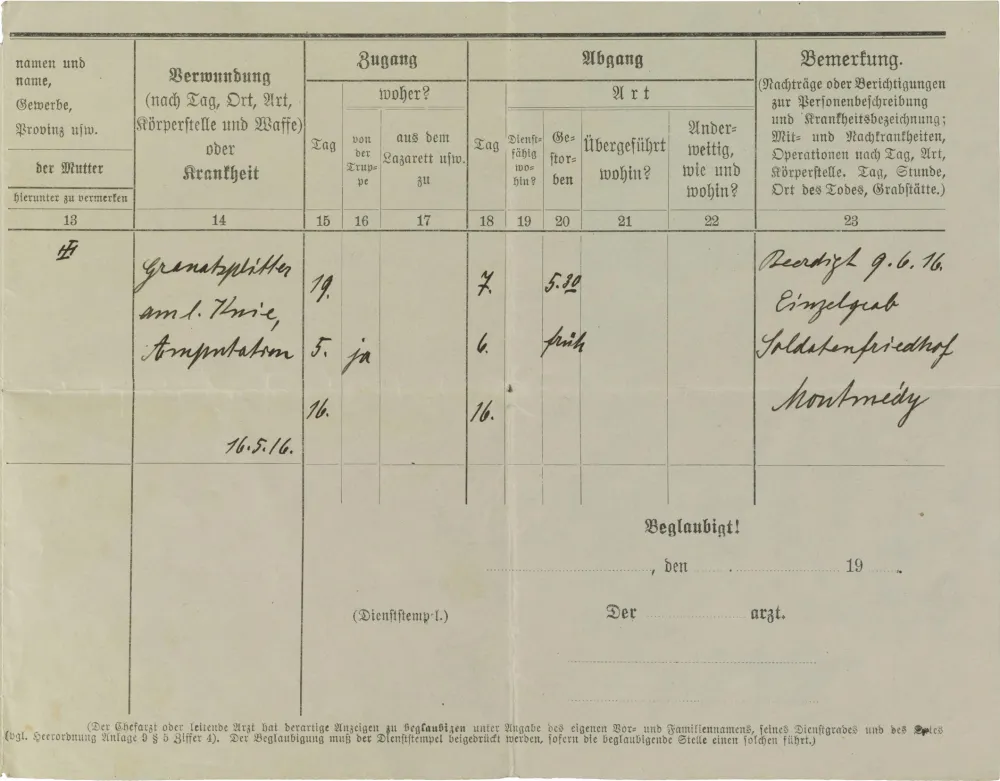 namen und
name,
Gewerbe,
Provinz usw.
der Mutter
hierunter zu vermerken
Verwundung
(nach Tag, Ort, Art,
Körperstelle und Waffe)
oder
Krankheit
Zugang
Tag
woher?
von
der
Trup-
pe
aus dem
Lazarett usw.
zu
Abgang
Tag
Art
Dienst-
fähig
wo-
hin?
Ge-
stor-
ben
Übergeführt
wohin?
Ander-
weitig,
wie und
wohin?
Bemerkung.
(Nachträge oder Berichtigungen
zur Personenbeschreibung
und Krankheitsbezeichnung;
Mit- und Nachkrankheiten,
Operationen nach Tag, Art,
Körperstelle. Tag, Stunde,
Ort des Todes, Grabstätte.)
13 14 15 16 17 18 19 20 21 22 23
Granatsplitter
am l. Knie,
Amputation
16.5.16.
19.
5.
16.
ja
7.
6.
16.
5.30
früh
Beerdigt 9.6.16.
Einzelgrab
Soldatenfriedhof
Montmédy
Beglaubigt!
, den 19 .
(Dienststempel.)
Der arzt.
(Der Chefarzt oder leitende Arzt hat derartige Anzeigen zu beglaubigen unter Angabe des eigenen Vor- und Familiennamens, seines Dienstgrades und des
(vgl. Heerordnung Anlage 9 § 5 Ziffer 4). Der Beglaubigung muß der Dienststempel beigedrückt werden, sofern die beglaubigende Stelle einen solchen führt.)